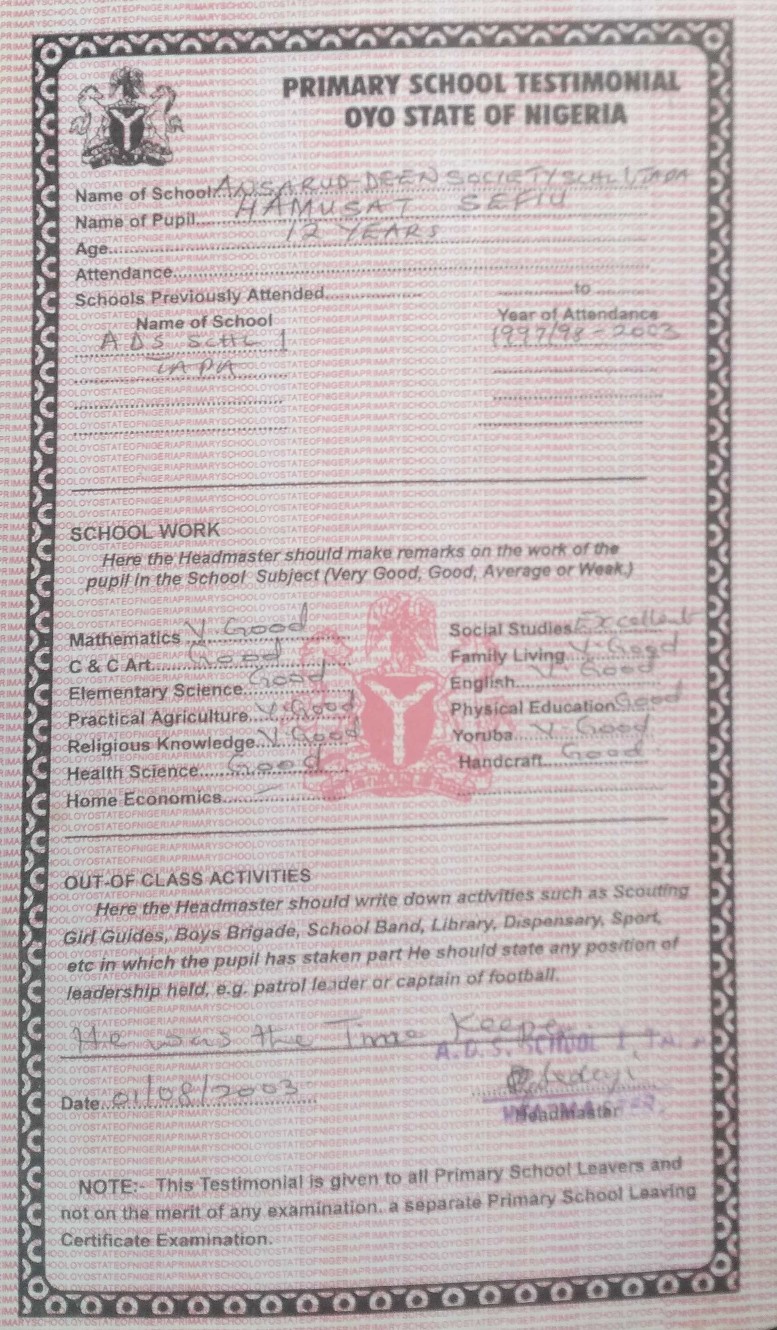 PRIMARY SCHOOL TESTIMONIAL
OYO STATE OF NIGERIA
Name of School ANSARUD-DEEN SOCIETY SCHL 1, TAPA
Name of Pupil HAMUSAT SEFIU
Age 12 YEARS
Attendance
Schools Previously Attended to
Name of School Year of Attendance
ADS SCHL 1 1997/98 - 2003
TAPA
SCHOOL WORK
Here the Headmaster should make remarks on the work of the
pupil in the School Subject (Very Good, Good, Average or Weak.)
Mathematics V. Good Social Studies Excellent
C & C Art Good Family Living V. Good
Elementary Science Good English V. Good
Practical Agriculture V. Good Physical Education Good
Religious Knowledge V. Good Yoruba V. Good
Health Science Good Handcraft Good
Home Economics -
OUT-OF CLASS ACTIVITIES
Here the Headmaster should write down activities such as Scouting
Girl Guides, Boys Brigade, School Band, Library, Dispensary, Sport,
etc in which the pupil has staken part He should state any position of
leadership held, e.g. patrol leader or captain of football.
He was the Time Keeper
A.D.S. SCHOOL 1,
Date 01/08/2003
HEADMASTER
Headmaster
NOTE:- This Testimonial is given to all Primary School Leavers and
not on the merit of any examination. a separate Primary School Leaving
Certificate Examination.